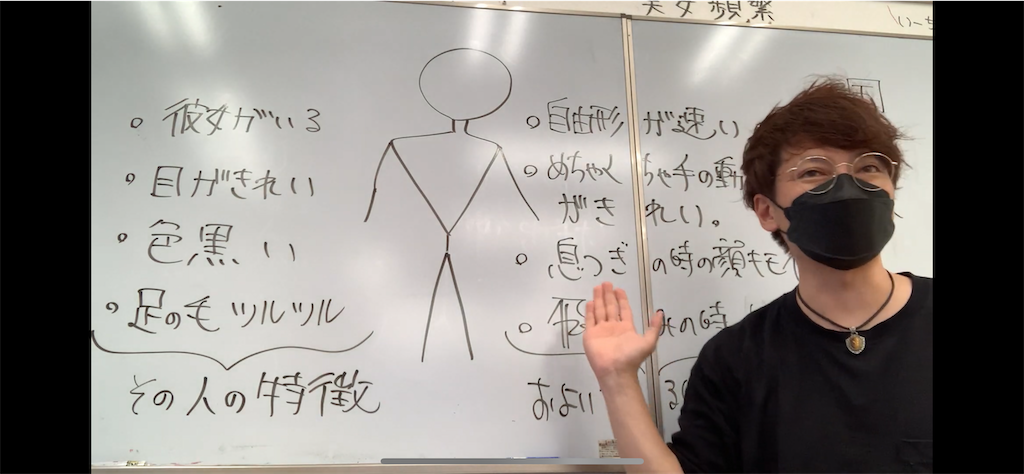 実女頻繁
彼女がいる
目がきれい
色黒い
足の毛ツルツル
その人の特徴
自由形が速い
めちゃくちゃ手の動
がきれい。
息つぎの時の顔キモ
の時
およい